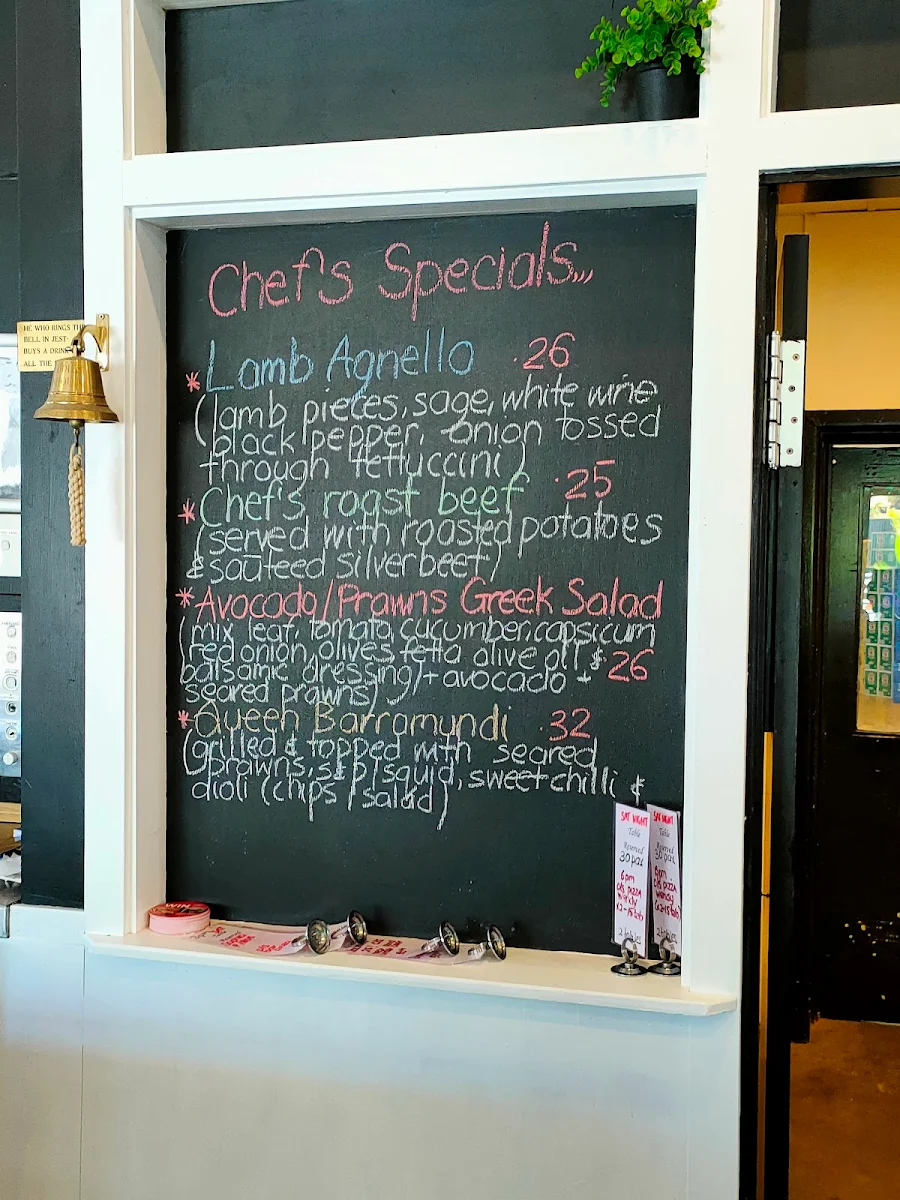 Chef's Specials,,,
* Lamb Agnello .26
(lamb pieces, sage, white wine
black pepper, onion tossed
through fettuccini)
* Chef's roast beef .25
(served with roasted potatoes
& sauteed silverbeet)
* Avocado/Prawns Greek Salad
(mix leaf, tomato, cucumber, capsicum
red onion, olives, fetta olive oil &
balsamic dressing) + avocado + 26
seared prawns)
* Queen Barramundi .32
(grilled & topped with seared
prawns, s&p squid, sweet chilli &
aioli (chips / salad)
HE WHO RINGS TH
BELL IN JEST
BUYS A DRINK
ALL THE
SAT NIGHT
Table
Reserved
30 pax
6pm
SAT NIGHT
Table
Reserved
30 pax
6pm